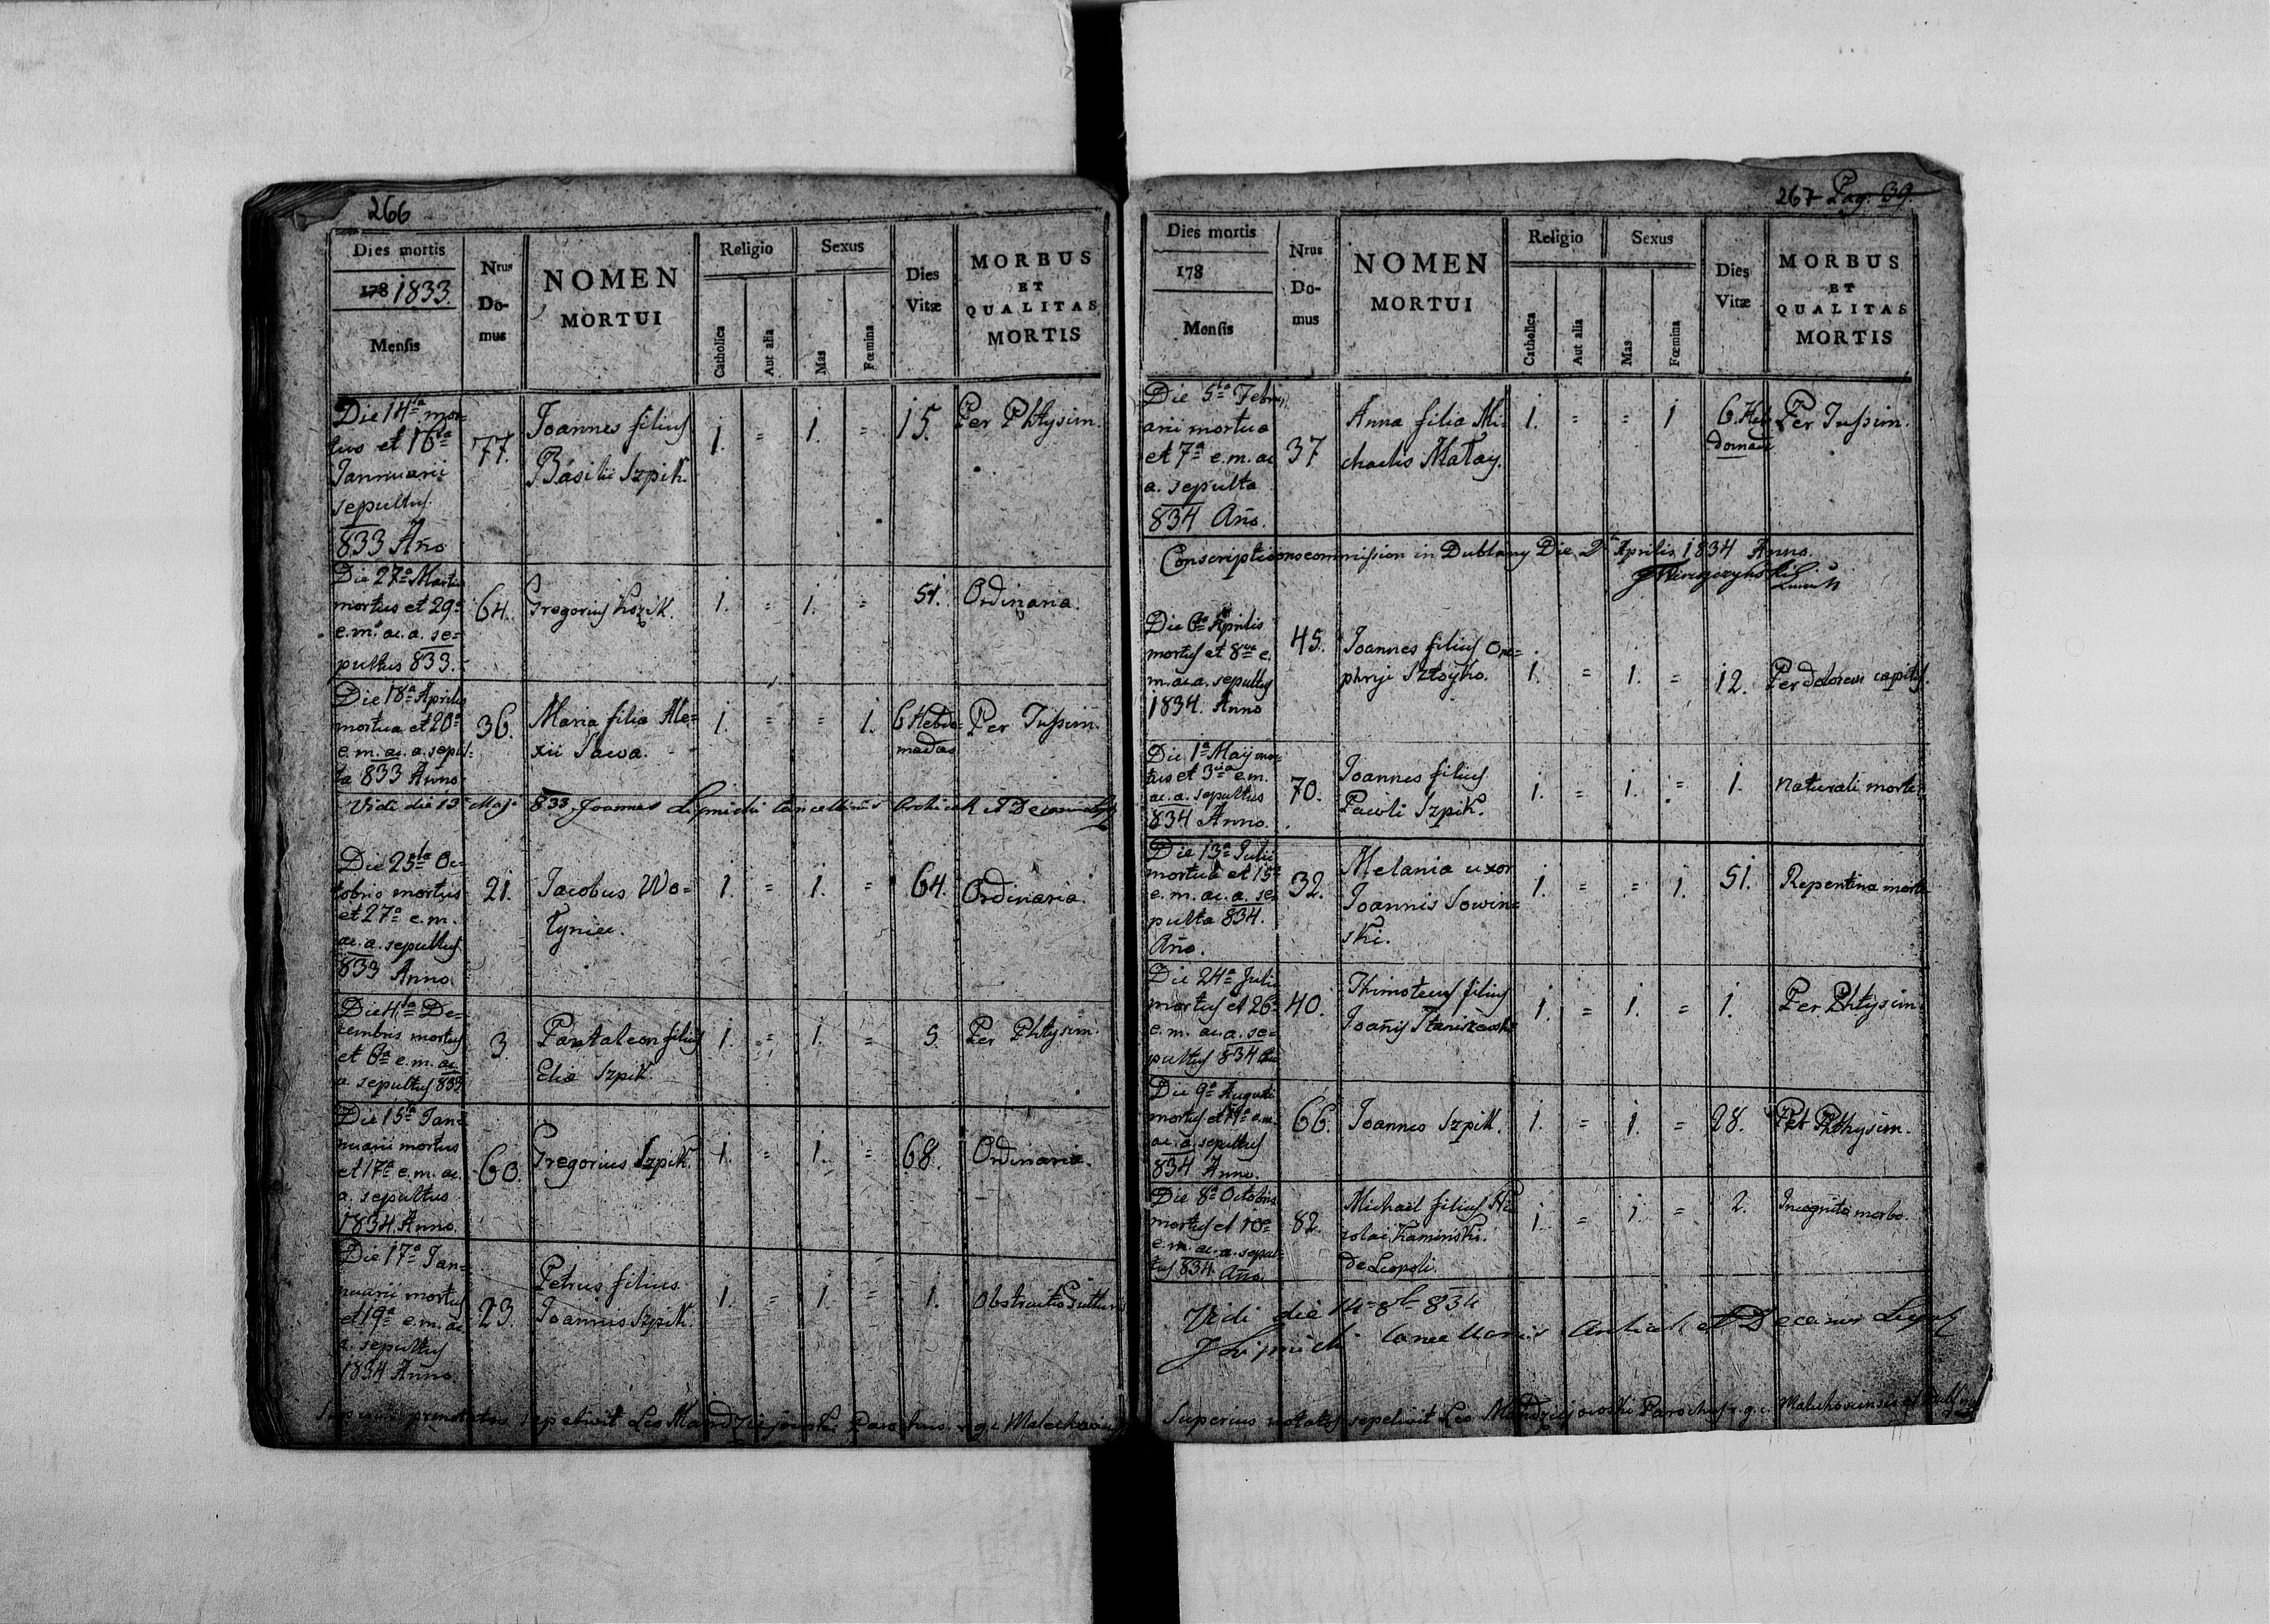 266
Dies mortis
178 1833.
Mensis
Nrus
Do-
mus
NOMEN
MORTUI
Religio
Catholica
Aut alia
Sexus
Mas
Fœmina
Dies
Vitæ
MORBUS
ET
QUALITAS
MORTIS
Die 14ta mor-
tuus et 16ta
Jannuarii
sepultus.
833 Año
77.
Joannes filius
Basilii Szpik.
1. = 1. = 15.
Per Phtysim.
Die 27a Martii
mortus et 29a
e.m. ac. a. se=
pultus 833.
64.
Gregorius Kozik.
1. = 1. = 51.
Ordinaria.
Die 18a Aprilis
mortua et 20a
e.m. ac. a. sepul=
ta 833 Anno
36.
Maria filia Ale=
xii Sawa.
1. = = 1.
6 Hebdo=
madas
Per Tussim.
Vidi die 13 Maji 833 Joannes
Die 25ta Oc=
tobris mortus
et 27a e.m.
ac. a. sepultus
833 Anno
21.
Jacobus Wo=
łyniec.
1. = 1. = 64.
Ordinaria.
Die 4ta De=
cembris mortus
et 6a e.m. ac
a sepultus 833
3.
Pantaleon filius
Eliæ Szpik.
1. = 1. = 5.
Per Phtysim.
Die 15ta Jan=
nuarii mortus
et 17a e.m. ac.
a. sepultus
1834. Anno.
60.
Gregorius Szpik.
1. = 1. = 68.
Ordinaria.
Die 17a Jan=
nuarii mortus
et 19a e.m. ac
a. sepultus
1834 Anno.
23.
Petrus filius
Joannis Szpik.
1. = 1. = 1.
Obstructio Gutturis
sepelivit Leo Mandziejowski Parochus r.g.c.
267 Pag. 39.
Dies mortis
178
Mensis
Nrus
Do-
mus
NOMEN
MORTUI
Religio
Catholica
Aut alia
Sexus
Mas
Fœmina
Dies
Vitæ
MORBUS
ET
QUALITAS
MORTIS
Die 5ta Febru
arii mortua
et 7a e.m. ac
a. sepulta
834 Año.
37
Anna filia Mi=
chaelis Matay.
1. = = 1
6. Heb
domad
Per Tussim.
Conscriptionscommission in Dublany Die 2 Aprilis 1834 Anno.
Die 6ta Aprilis
mortus et 8va e.
m. ac a. sepultus
1834. Anno
45.
Joannes filius Ono=
phryi Sztoyko.
1. = 1. = 12.
Per dolorem capitis.
Die 1a Maij mor=
tus et 3tia e.m.
ac. a. sepultus
834 Anno.
70.
Joannes filius
Pawli Szpik.
1. = 1. = 1.
Naturali morte.
Die 13a Julii
mortua et 15a
e. m. ac. a. se=
pulta 834.
Año.
32.
Melania uxor
Joannis Sowin=
ski.
1. = = 1. 51.
Repentina morte
Die 24a Julii
mortus et 26a
e. m. ac. a. se=
pultus 834
40.
Thimoteus filius
Joañis Staniszewski
1. = 1. = 1.
Per Phtysim.
Die 9a Augusti
mortus et 11a e.m.
ac. a sepultus
834 Anno.
66.
Joannes Szpik.
1. = 1. = 28.
Per Phthysim.
Die 8a Octobris
mortus et 10a
e.m. ac. a. sepul=
tus 834 Año
82.
Michael filius Ni
colai Kaminski.
de Leopoli.
1. = 1. = 2.
Incognito morbo.
Vidi die 14 8b 834
Superius notatos sepelivit Leo Mandziejowski Parochus r.g.c.